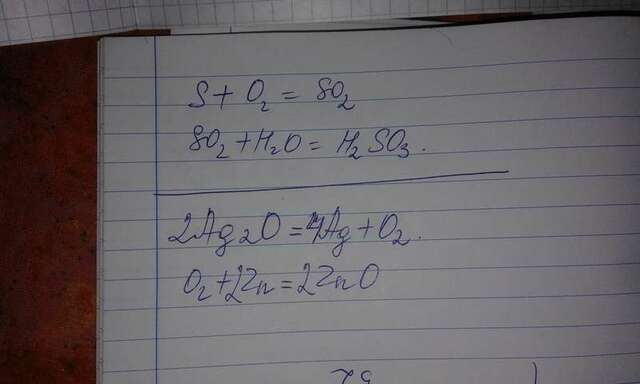 S + O₂ = SO₂
SO₂ + H₂O = H₂SO₃.
2Ag₂O = 4Ag + O₂.
O₂ + 2Zn = 2ZnO